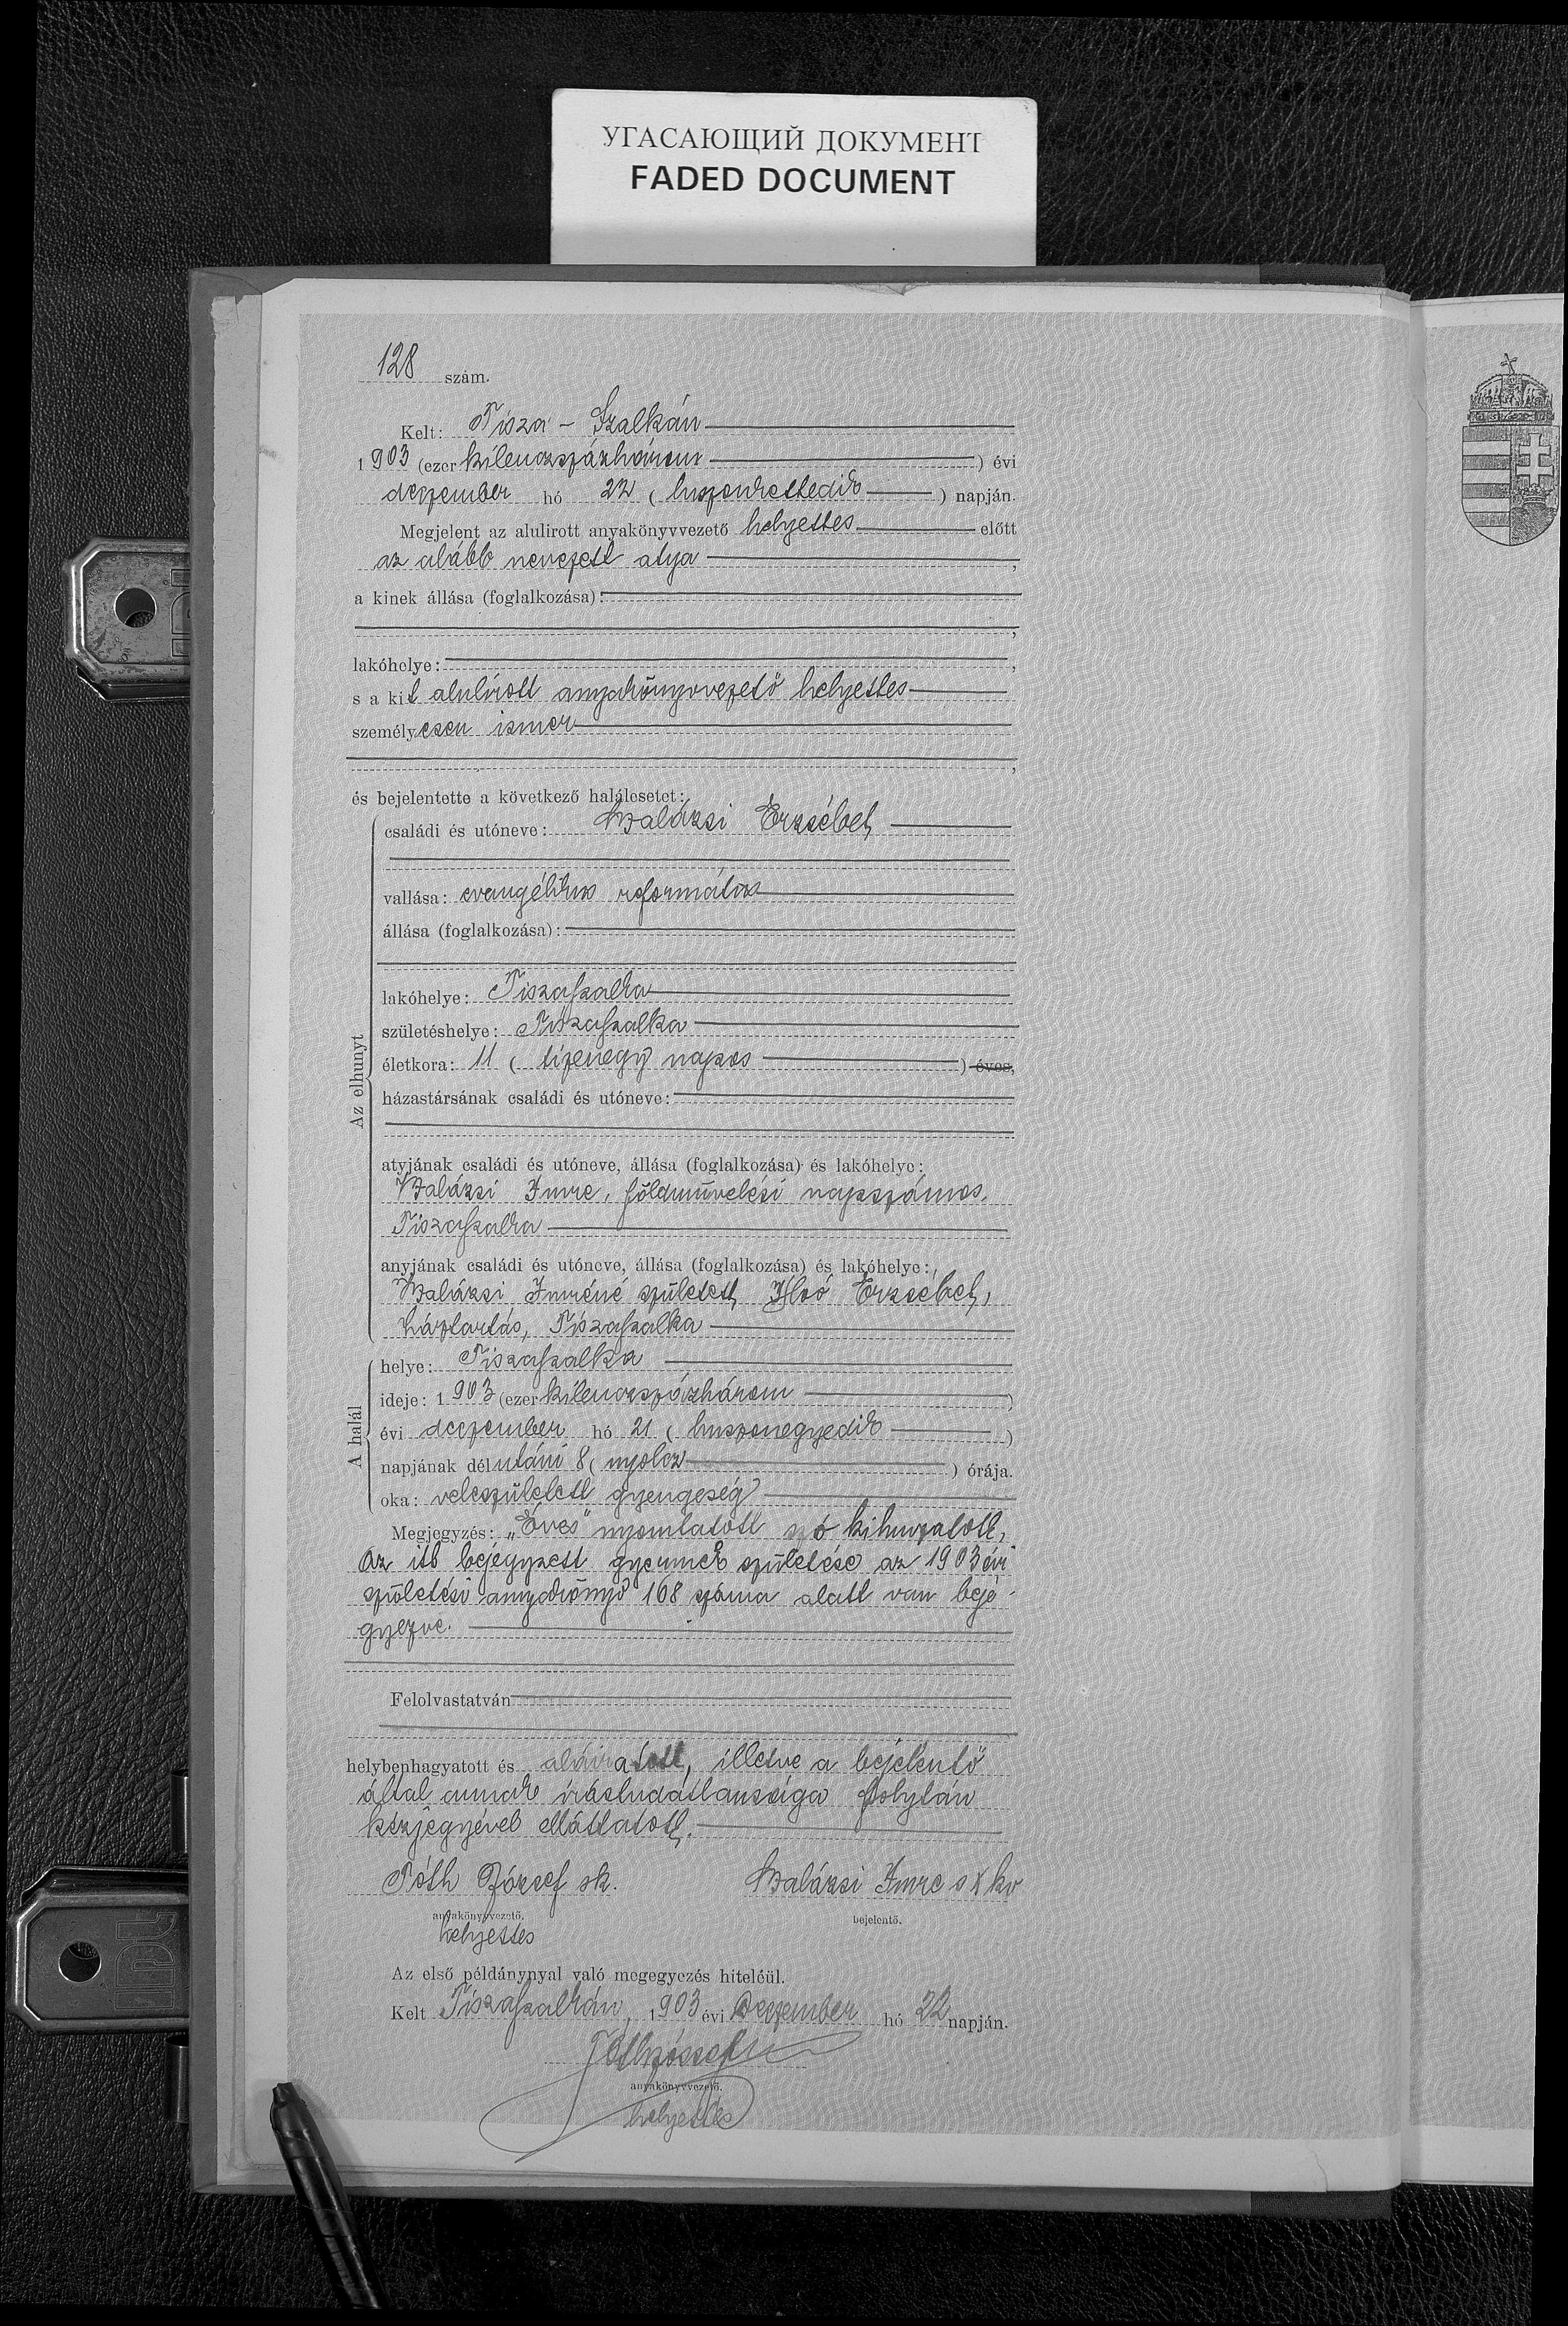 УГАСАЮЩИЙ ДОКУМЕНТ
FADED DOCUMENT
128 szám.
Kelt: Tisza - Szalkán
1903 (ezer kilenczszázhárom) évi
deczember hó 22 (huszonkettedik) napján.
Megjelent az alulirott anyakönyvvezető helyettes előtt
az alább nevezett atya,
a kinek állása (foglalkozása):
,
lakóhelye: ,
s a kit alulírott anyakönyvvezető helyettes
személyesen ismer
,
és bejelentette a következő halálesetet:
családi és utóneve: Balázsi Erzsébet,
vallása: evangélikus református
állása (foglalkozása):
lakóhelye: Tiszaszalka
születéshelye: Tiszaszalka
életkora: 11 (tizenegy napos) éves,
házastársának családi és utóneve:
Az elhunyt
atyjának családi és utóneve, állása (foglalkozása) és lakóhelye:
Balázsi Imre, földművelési napszámos,
Tiszaszalka
anyjának családi és utóneve, állása (foglalkozása) és lakóhelye:
Balázsi Imréné született Erzsébet,
háztartás, Tiszaszalka
A halál
helye: Tiszaszalka
ideje: 1903 (ezer kilenczszázhárom)
évi deczember hó 21 (huszonegyedik)
napjának délutáni 8 (nyolcz) órája.
oka: veleszületett gyengeség
Megjegyzés: „Éves" nyomtatott szó kihuzatott,
Az itt bejegyzett gyermek születése az 1903 évi
születési anyakönyv 168 száma alatt van bejegyezve.
Felolvastatván
helybenhagyatott és aláiratott, illetve a bejelentő
által annak írástudatlansága folytán
kézjegyével elláttatott.
Tóth József sk. Balázsi Imre s x kv
anyakönyvvezető. bejelentő.
helyettes
Az első példánynyal való megegyezés hiteléül.
Kelt Tiszaszalkán, 1903 évi Deczember hó 22 napján.
Tóth József
anyakönyvvezető.
helyettes